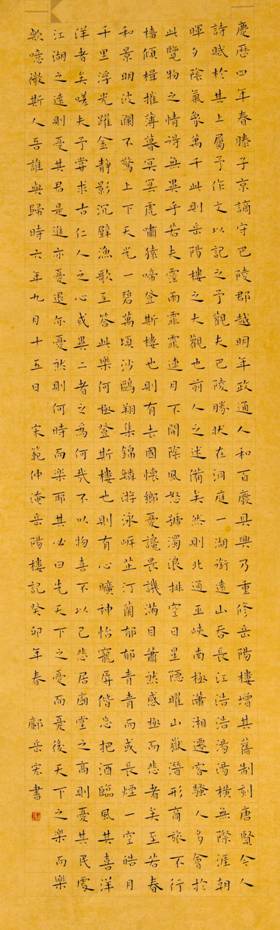 慶歷四年春滕子京謫守巴陵郡越明年政通人和百廢具興乃重修岳陽樓增其舊制刻唐賢今人
詩賦於其上屬予作文以記之予觀夫巴陵勝狀在洞庭一湖銜遠山吞長江浩浩湯湯橫無際涯朝
暉夕陰氣象萬千此則岳陽樓之大觀也前人之述備矣然則北通巫峽南極瀟湘遷客騷人多會於
此覽物之情得無異乎若夫霪雨霏霏連月不開陰風怒號濁浪排空日星隱曜山嶽潛形商旅不行
檣傾楫摧薄暮冥冥虎嘯猿啼登斯樓也則有去國懷鄉憂讒畏譏滿目蕭然感極而悲者矣至若春
和景明波瀾不驚上下天光一碧萬頃沙鷗翔集錦鱗游泳岸芷汀蘭郁郁青青而或長煙一空皓月
千里浮光躍金靜影沉璧漁歌互答此樂何極登斯樓也則有心曠神怡寵辱偕忘把酒臨風其喜洋
洋者矣嗟夫予嘗求古仁人之心或異二者之為何哉不以物喜不以己悲居廟堂之高則憂其民處
江湖之遠則憂其君是進亦憂退亦憂然則何時而樂耶其必曰先天下之憂而憂後天下之樂而樂
歟噫微斯人吾誰與歸時六年九月十五日 宋範仲淹岳陽樓記癸卯年春 鄺岳宏書